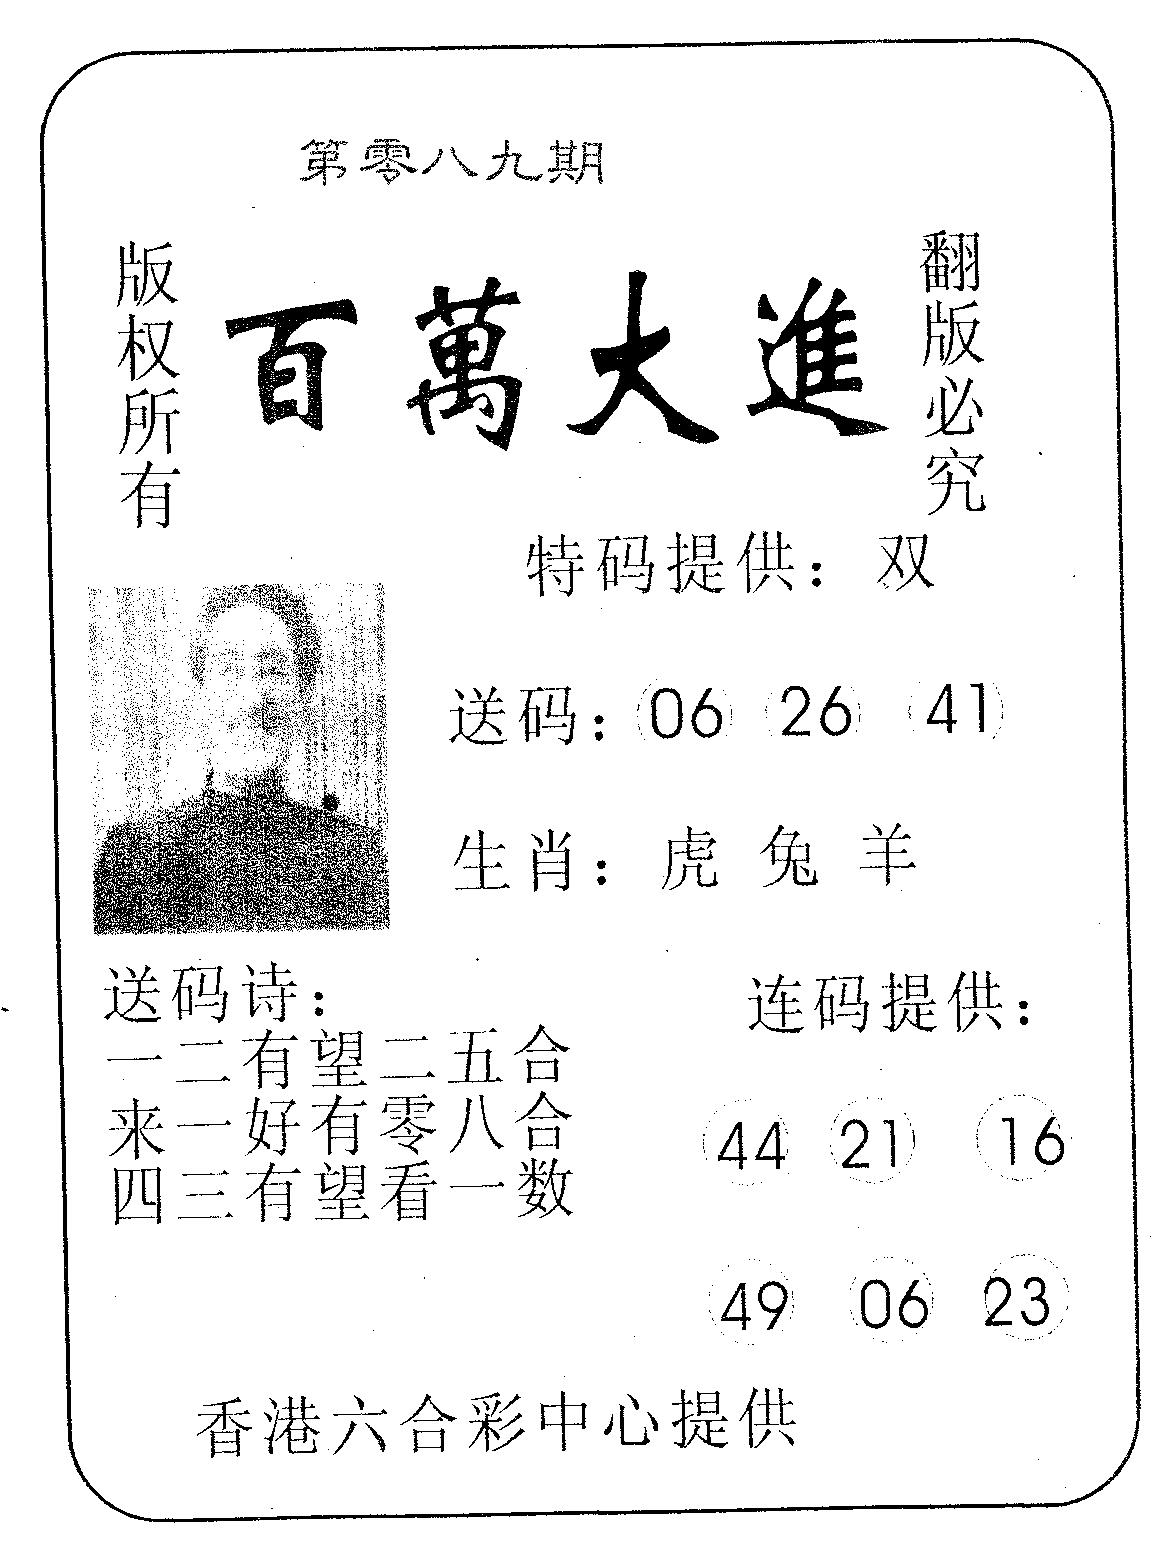 第零八九期
版权所有
百萬大進
翻版必究
特码提供：双
送码：06 26 41
生肖：虎 兔 羊
送码诗：
一二有望二五合
来一好有零八合
四三有望看一数
连码提供：
44 21 16
49 06 23
香港六合彩中心提供